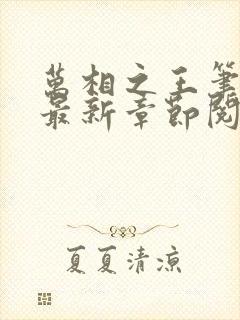 萬相之王筆
最新章節閱
夏夏清涼